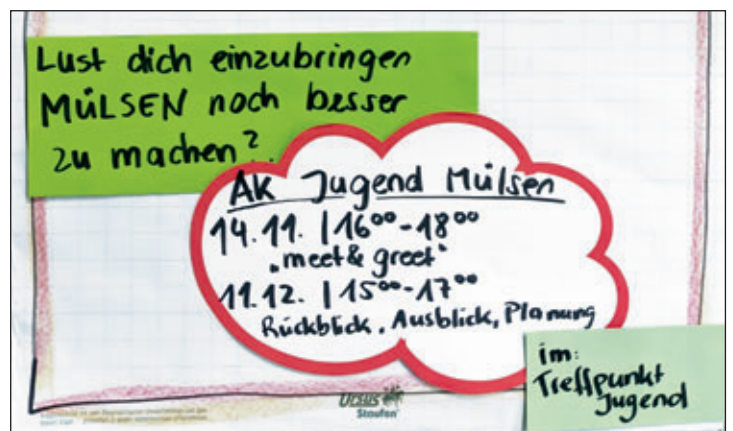 Lust dich einzubringen
MÜLSEN noch besser
zu machen?
AK Jugend Mülsen
14.11. | 16⁰⁰-18⁰⁰
„meet & greet“
11.12. | 15⁰⁰-17⁰⁰
Rückblick, Ausblick, Planung
im:
Treffpunkt
Jugend
Ursus
Staufen